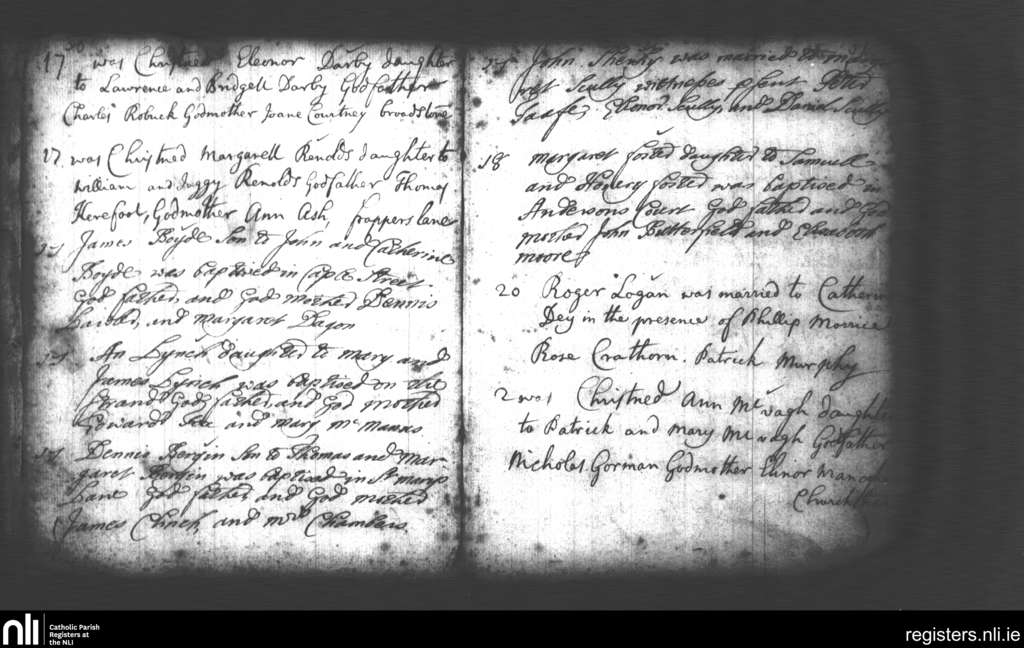 17 was Christned Eleonor Darby daughter
to Lawrence and Bridgett Darby Godfather
Charles Robuck Godmother Joane Courtney broadstone
17 was Christned Margarett Renolds daughter to
William and Juggy Renolds Godfather Thomas
Hereford, Godmother Ann Ash, frappers lane
James Boyde Son to John and Catherine
Boyde was baptised in Caple Street.
God father and God mother Dennis
and Margaret Dagon
An Lynch daughter to Mary and
James Lynch was baptised on the
Strand God father and God mother
Edward and Mary Mc Manas
Dennis Son to Thomas and Mar-
garet was baptised in St Marys
Lane God father and God mother
James Clinch, and Mrs Chambers
John was married to
Scully witnesses Peter
Elconor Scully, and Daniel Scully
18 Margaret fosted daughter to Samuell
and fosted was baptised in
Andersons Court God father and God
mother John Butterfield and Elisabeth
moore
20 Roger Logan was married to
Dey in the presence of Phillip Morrice
Rose Crathorn. Patrick Murphy
2 was Christned Ann Mc vagh
to Patrick and Mary Mc vagh Godfather
Nicholas Gorman Godmother Elinor
nli
Catholic Parish
Registers at
the NLI
registers.nli.ie